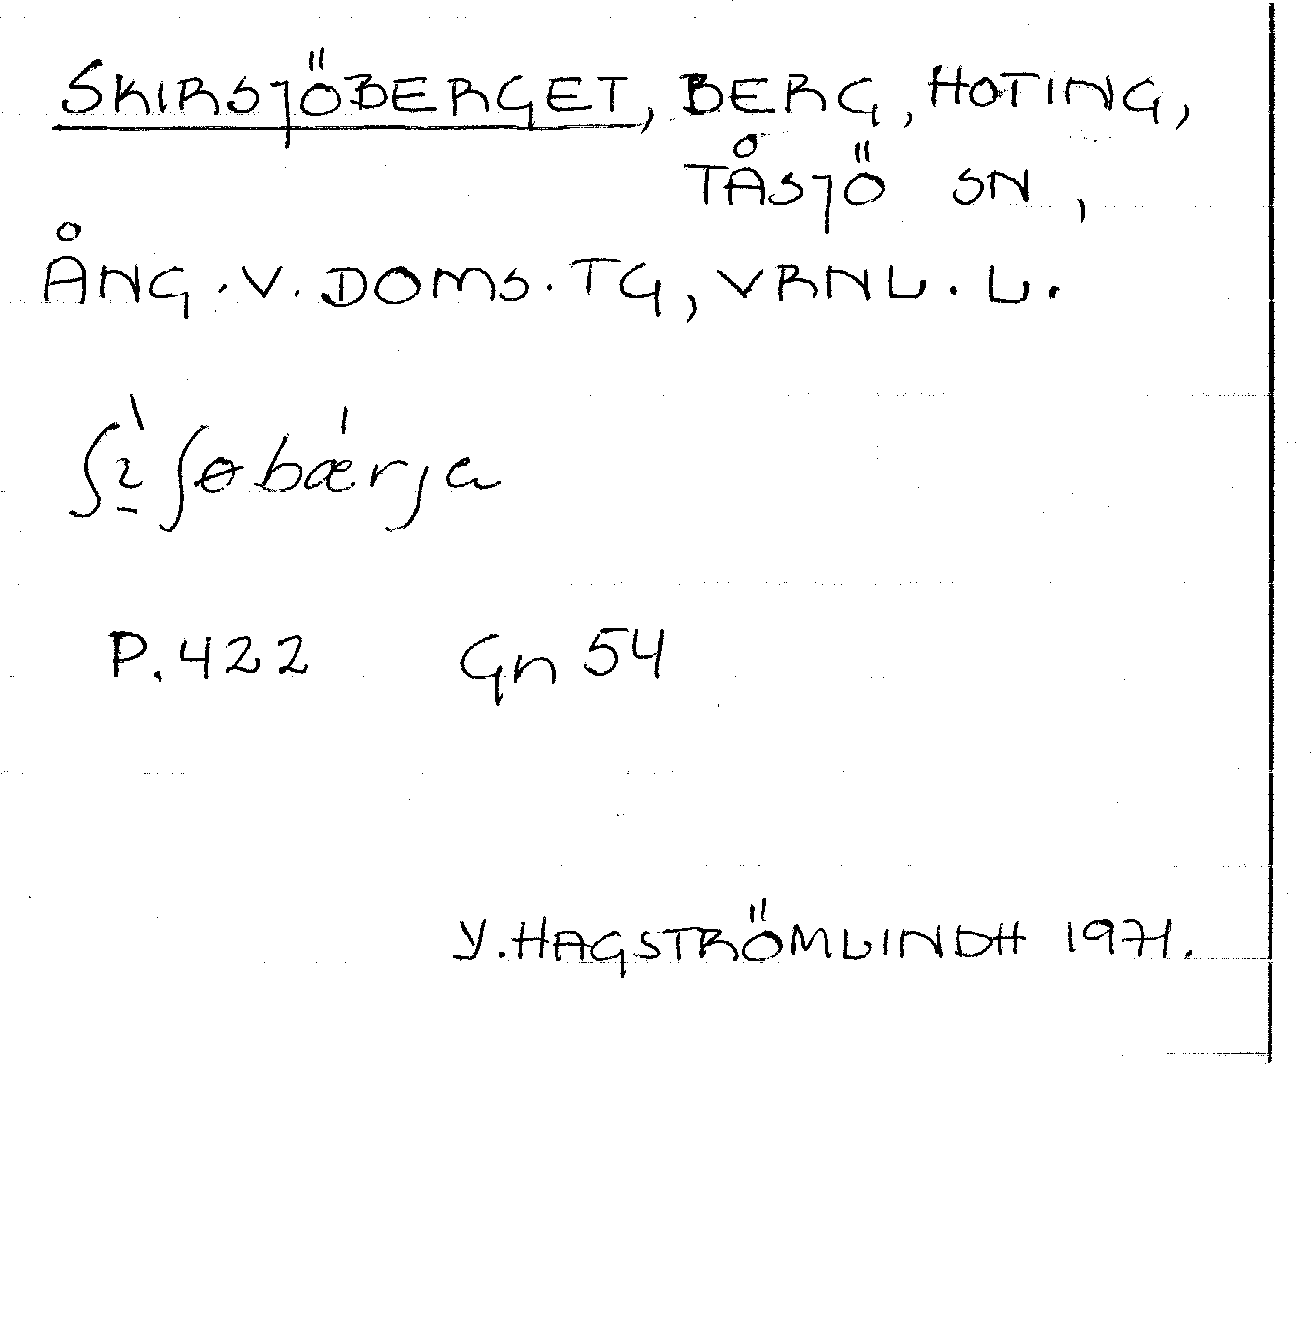 SKIRSJÖBERGET, BERG, HOTING,
TÅSJÖ SN,
ÅNG. V. DOMS. TG, VRNL. L.
ʃɩ̱̀ʃɵbǽrja
P. 422 Gn 54
Y. HAGSTRÖMLINDH 1971.